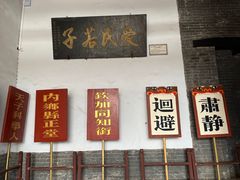 愛民若子
肅静
迴避
欽加同知銜
内鄉縣正堂
子科舉人